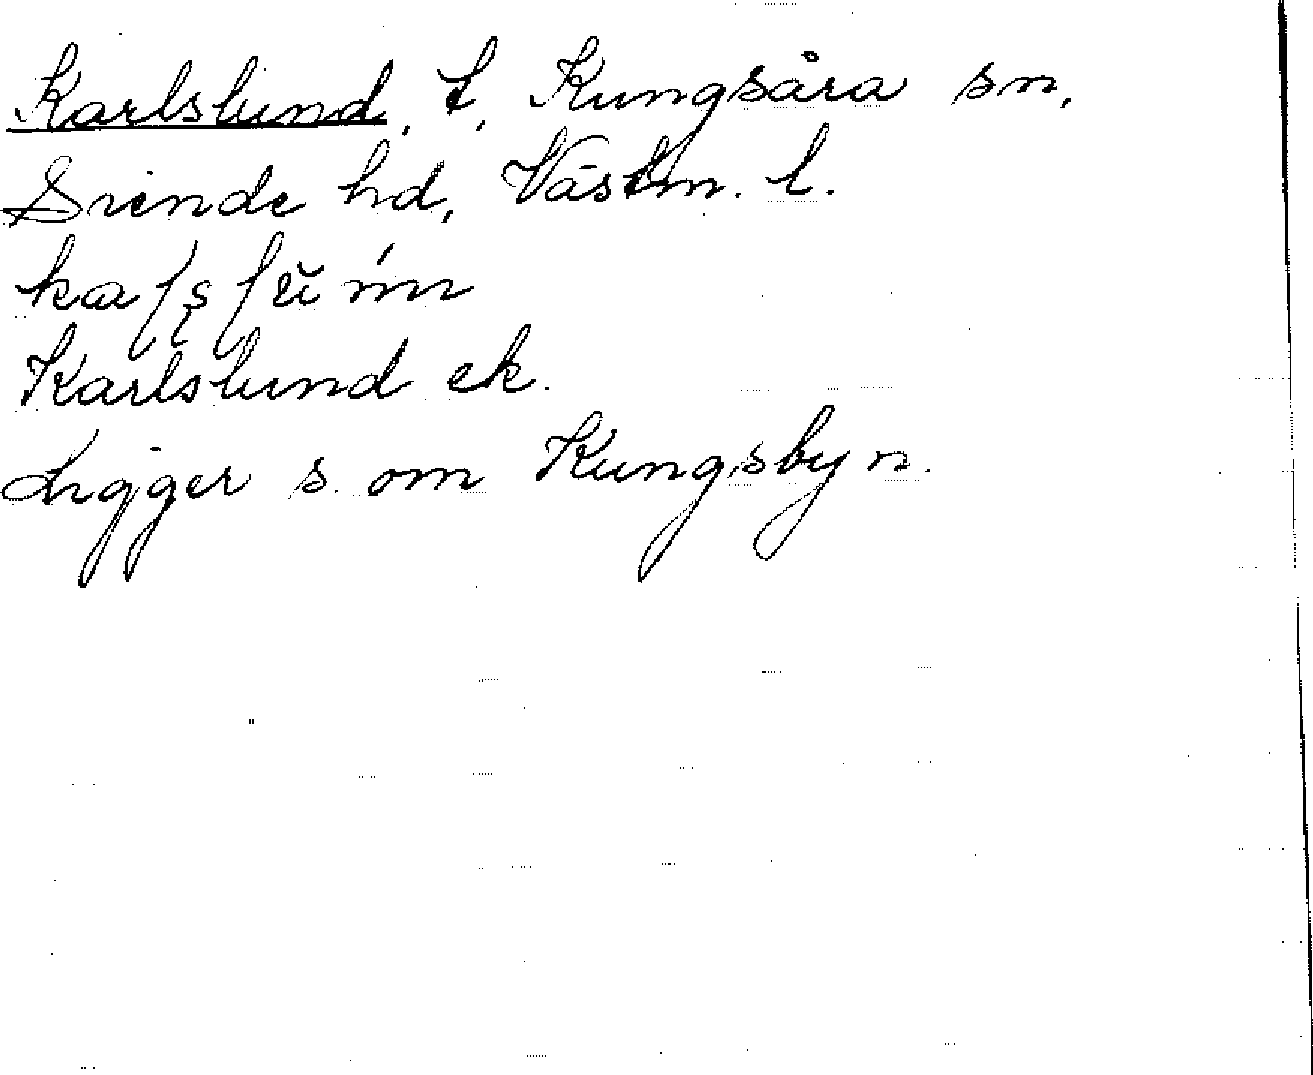 Karlslund, t, Kungsåra sn,
Siende hd, Västm. l.
Karlslund ek.
Ligger s. om Kungsbyn.